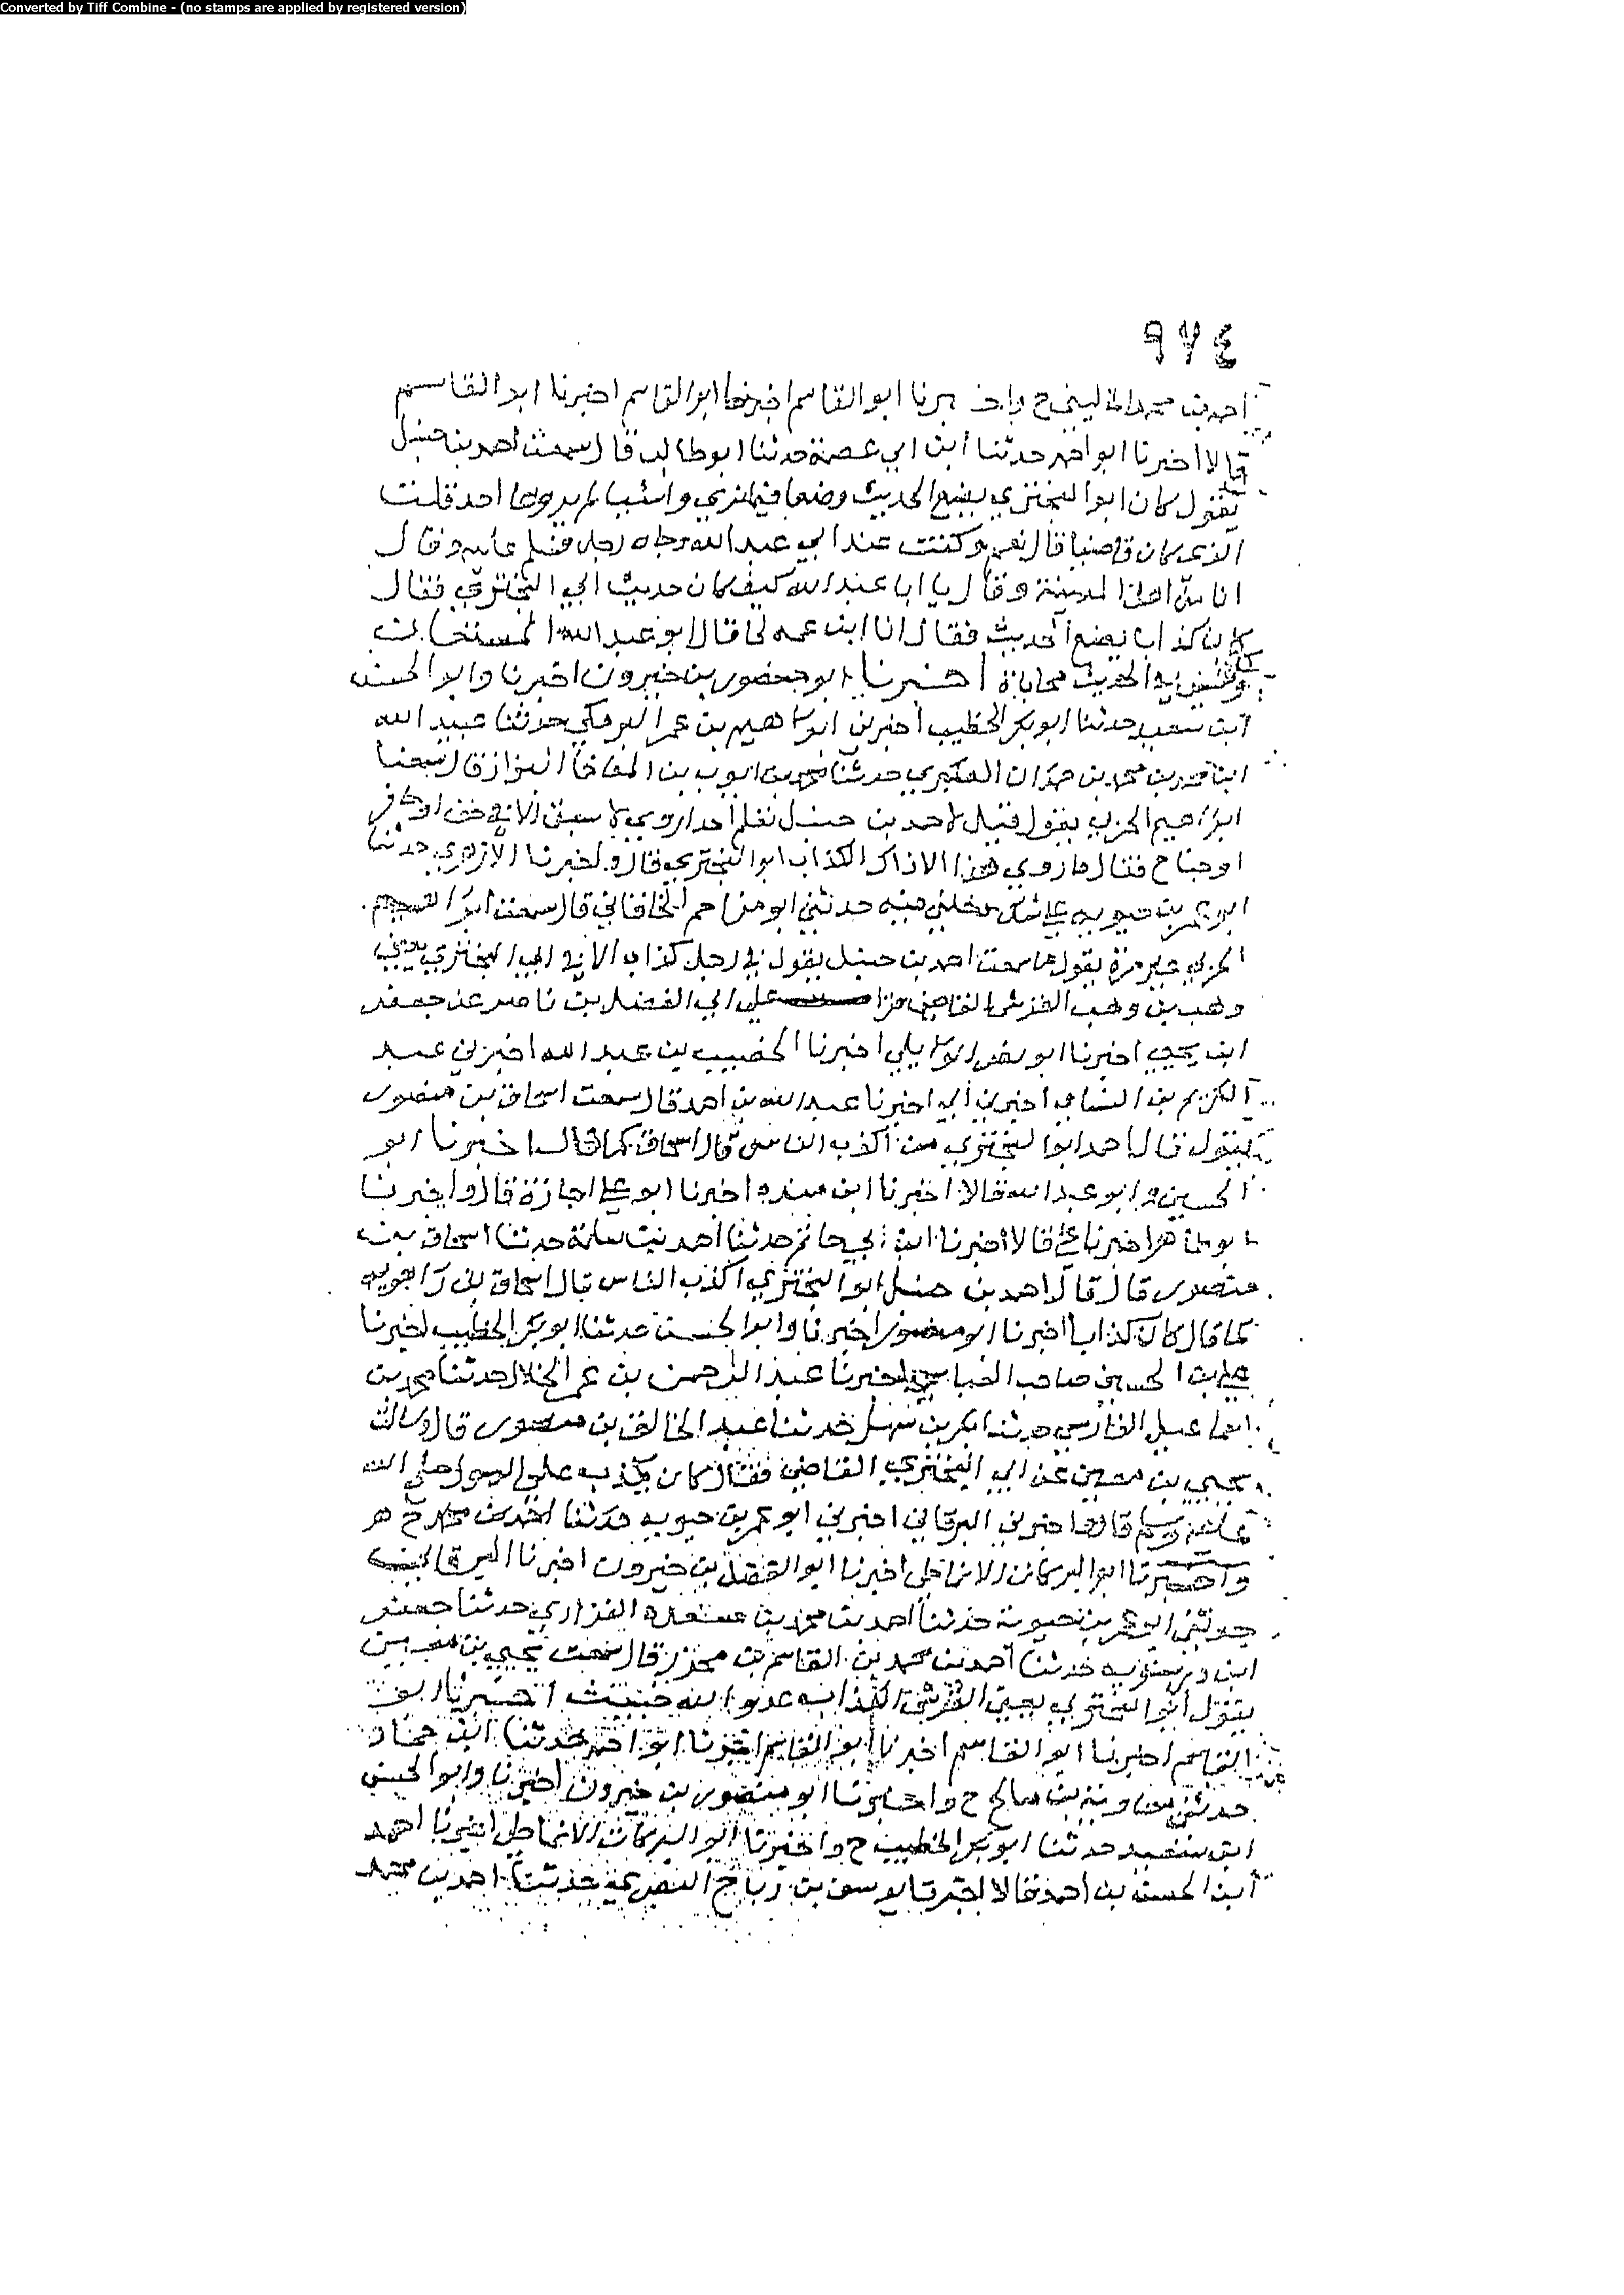 Converted by Tiff Combine - (no stamps are applied by registered version)
٩٧٤
احمد بن محمد الماليني ح واخبرنا ابو القاسم اخبرنا ابو القاسم اخبرنا ابو القاسم
قالا اخبرنا ابو احمد حدثنا ابن ابي عصمة حدثنا ابو طالب قال سمعت احمد بن حنبل
يقول كان ابو البختري يضع الحديث وضعا فيما نرى واشيا لم يروها احد قلت
الذي كان قاضيا قال نعم وكنت عند ابي عبد الله وجاه رجل فسلم عليه وقال
انا من اهل المدينة وقال يا ابا عبد الله كيف كان حديث ابي البختري فقال
كان كذابا يضع الحديث فقال انا ابن عمه لحا قال ابو عبد الله المستعان
ليس في الحديث محاباة اخبرنا ابو منصور بن خيرون اخبرنا وابو الحسن
ابن سعيد حدثنا ابو بكر الخطيب اخبرني ابراهيم بن عمر البرمكي حدثنا عبيد الله
ابن محمد بن محمد بن حمدان العكبري حدثنا محمد بن ايوب بن المعافا البزاز قال سمعنا
ابراهيم الحربي يقول قيل لاحمد بن حنبل تعلم احدا روى لا سبق الا في خف او حافر
او جناح فقال ما روى هذا الا ذاك الكذاب ابو البختري قال واخبرنا الازهري حدثنا
ابو عمر بن حيويه حدثني ابو مزاحم الخاقاني قال سمعت ابراهيم
الحربي غير مرة يقول ما سمعت احمد بن حنبل يقول في رجل كذاب الا في ابي البختري يعني
وهب بن وهب القرشي القاضي قرات على ابي الفضل بن ناصر عن جعفر
ابن يحيى اخبرنا ابو نصر الوايلي اخبرنا الخصيب بن عبد الله اخبرني عبد
الكريم بن النسائي اخبرني ابي اخبرنا عبد الله بن احمد قال سمعت اسحاق بن منصور
يقول قال احمد ابو البختري من اكذب الناس قال اسحاق كما قال اخبرنا ابو
الحسين وابو عبد الله قالا اخبرنا ابن منده اخبرنا ابو علي اجازة قال واخبرنا
ابو طاهر اخبرنا علي قالا اخبرنا ابن ابي حاتم حدثنا احمد بن سلمة حدثنا اسحاق بن
منصور قال قال احمد بن حنبل ابو البختري اكذب الناس قال اسحاق بن راهويه
كما قال كان كذابا اخبرنا ابو منصور اخبرنا وابو الحسن حدثنا ابو بكر الخطيب اخبرنا
علي بن الحسين صاحب العباسي اخبرنا عبد الرحمن بن عمر الخلال حدثنا محمد بن
اسماعيل الفارسي حدثنا بكر بن سهل حدثنا عبد الخالق بن منصور قال وسالت
يحيى بن معين عن ابي البختري القاضي فقال كان يكذب على رسول صلى الله
عليه وسلم قال واخبرني البرقاني اخبرني ابو عمر بن حيويه حدثنا احمد بن محمد ح
واخبرنا ابو البركات الانماطي اخبرنا ابو الفضل بن خيرون اخبرنا البرقاني
حدثني ابو عمر بن حيويه حدثنا احمد بن محمد بن مسعده الفزاري حدثنا جعفر
ابن درستويه حدثنا احمد بن محمد بن القاسم بن محرز قال سمعت يحيى بن معين
يقول ابو البختري يعني القرشي الكذاب عدو الله خبيث اخبرنا ابو
القاسم اخبرنا ابو القاسم اخبرنا ابو القاسم اخبرنا ابو احمد حدثنا ابن حماد
حدثني معاوية بن صالح ح واخبرنا ابو منصور بن خيرون اخبرنا وابو الحسن
ابن سعيد حدثنا ابو بكر الخطيب ح واخبرنا ابو البركات الانماطي اخبرنا احمد
ابن الحسن بن احمد قالا اخبرنا يوسف بن رباح البصري حدثنا احمد بن محمد